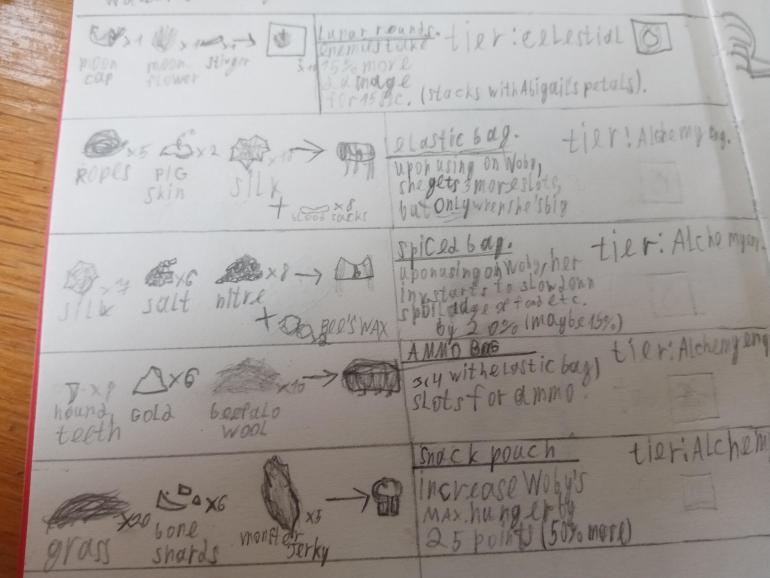 moon cap
x1
moon flower
stinger
Lunar rounds.
enemies take
15% more
damage
for 15 sec. (stacks with Abigail's petals).
tier: celestial
ROPES x5
PIG skin x2
silk x10
+ x8
Elastic bag.
upon using on Woby,
she gets 3 more slots,
but only when she's big
tier: Alchemy eng.
silk
salt x6
nitre x8
+ BEE'S WAX
spiced bag.
upon using on Woby, her
inv starts to slow down
spoilage of food etc.
by 20% (maybe 15%)
tier: Alchemy en.
hound teeth
GOLD x6
beefalo WOOL x10
AMMO BAG
3(4 with elastic bag)
slots for ammo.
tier: Alchemy eng
grass x20
bone shards x6
monster Jerky x3
Snack pouch
increase Woby's
max. hunger by
25 points (50% more)
tier: Alchem